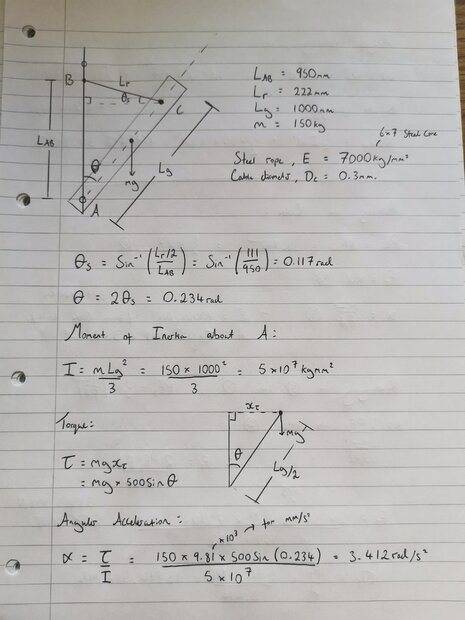 B
L_r
θ_s
C
L_AB
θ
mg
L_g
A
L_AB = 950mm
L_r = 222mm
L_g = 1000mm
m = 150kg
6×7 Steel Core
Steel rope, E = 7000kg/mm²
Cable diameter, D_c = 0.3mm
θ_s = Sin⁻¹((L_r/2)/L_AB) = Sin⁻¹(111/950) = 0.117rad
θ = 2θ_s = 0.234rad
Moment of Inertia about A:
I = mL_g²/3 = 150 × 1000²/3 = 5×10⁷ kgmm²
Torque:
x_τ
θ
mg
L_g/2
τ = mgx_τ
= mg × 500Sinθ
Angular Acceleration:
×10³ → for mm/s²
α = τ/I = 150 × 9.81 × 500Sin(0.234)/5×10⁷ = 3.412rad/s²